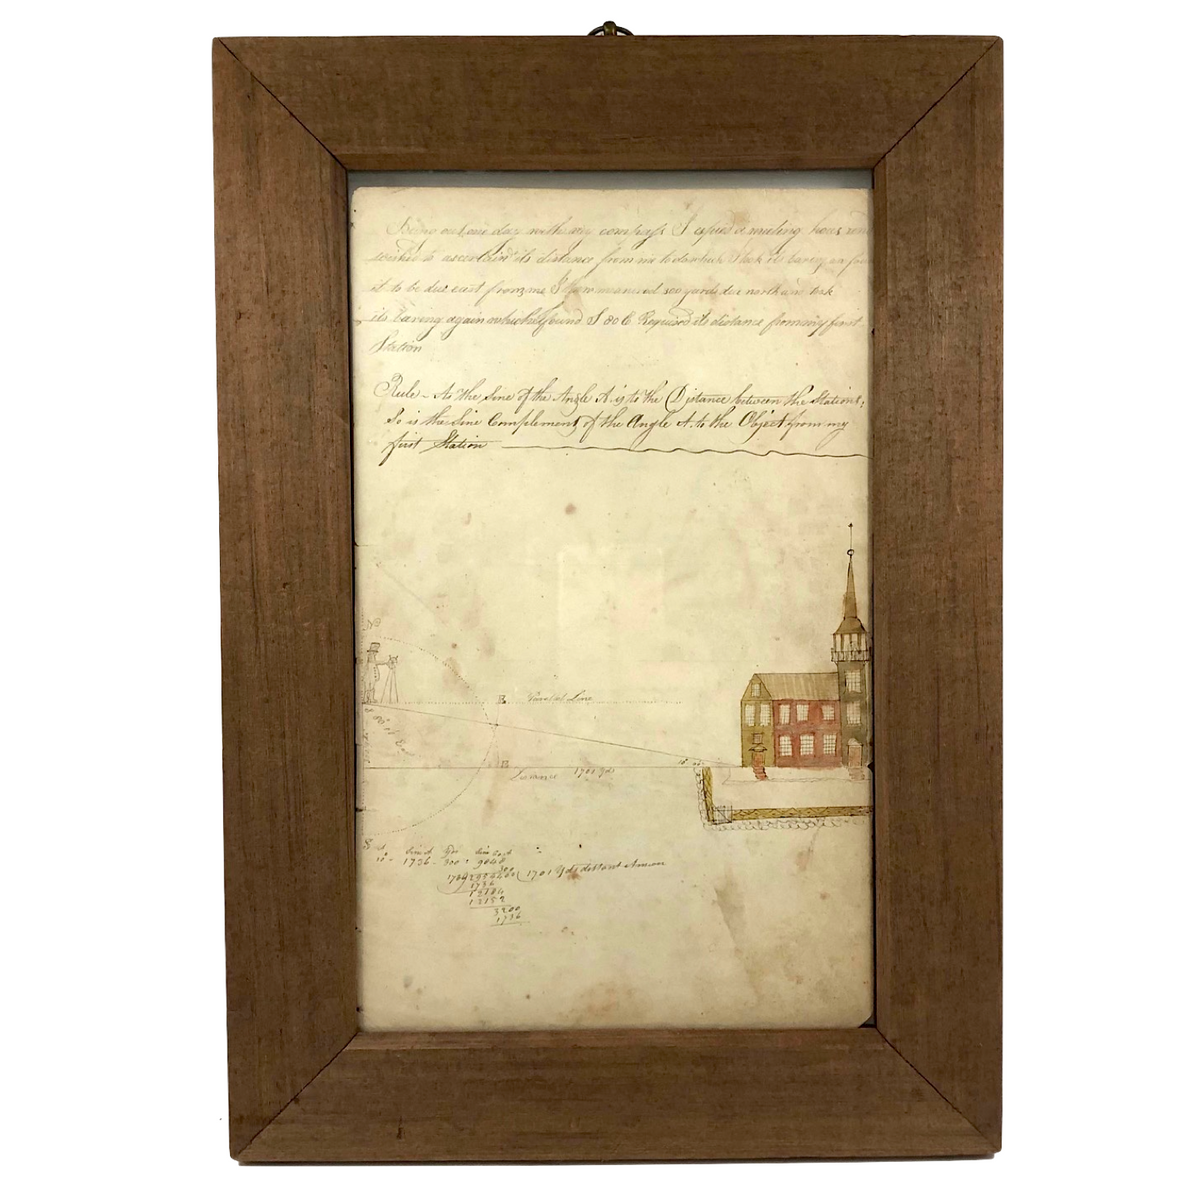 Being out one day with my compass I aspied a meeting hous and
wished to ascertain its distance from me to do which I took its baring an fou
it to be due east from me I then measured 300 yards due north and took
its baring again which I found S 80 E Required its distance from my first
Station
Rule - As the Sine of the Angle A is to the Distance between the Stations;
So is the Sine Complement of the Angle A to the Object from my
first Station
No
E Paralel Line
E
Distance 1701 Yds
10°
S
Sine A Yds Sine Co A
10° - 1736 - 300 : 9848
300
1736)2954400(1701 Yds distant Answer
1736
12184
12152
3200
1736